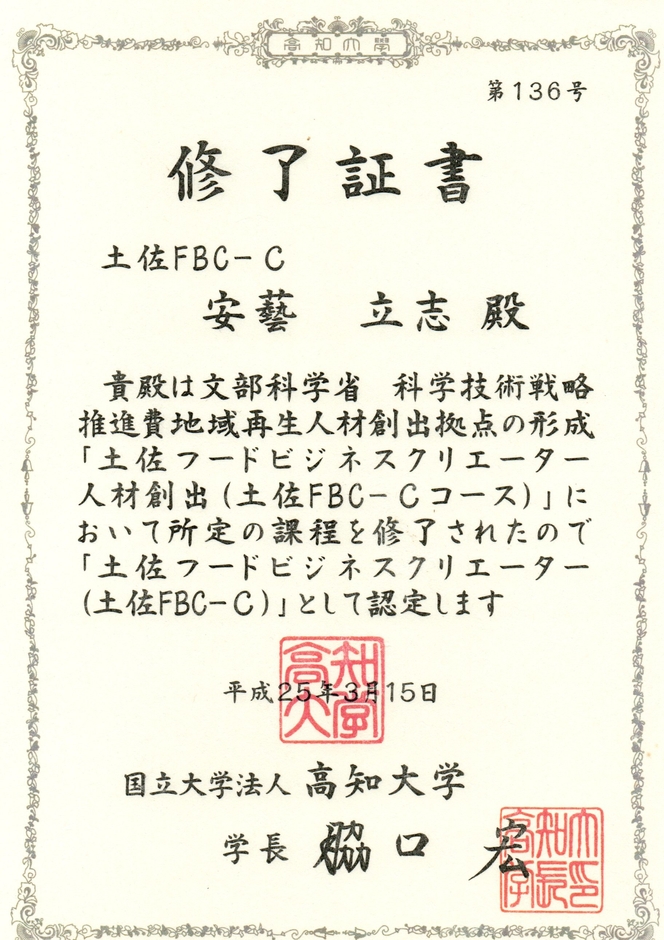 高知大學
第136号
修了証書
土佐FBC-C
安藝 立志 殿
貴殿は文部科学省 科学技術戦略
推進費地域再生人材創出拠点の形成
「土佐フードビジネスクリエーター
人材創出(土佐FBC-Cコース)」に
おいて所定の課程を修了されたので
「土佐フードビジネスクリエーター
(土佐FBC-C)」として認定します
高知大学
平成25年3月15日
国立大学法人 高知大学
学長 脇口 宏
高知大学長印